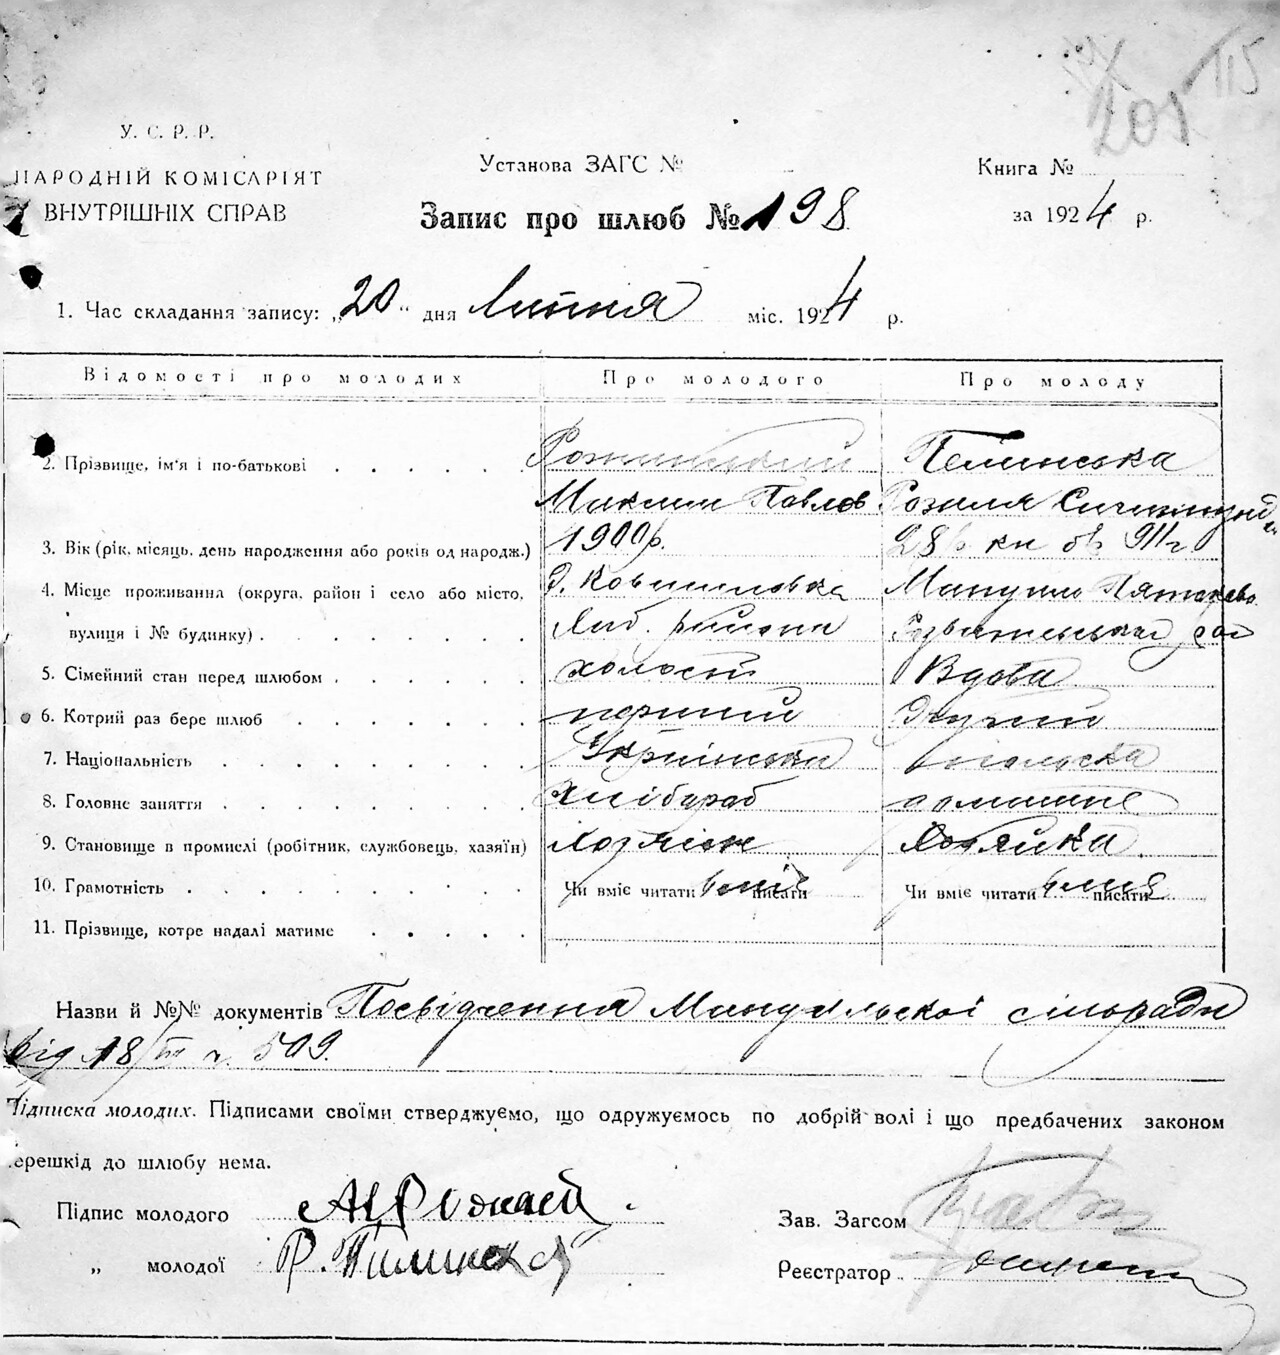 115
201
У. С. Р. Р.
НАРОДНІЙ КОМІСАРІЯТ
ВНУТРІШНІХ СПРАВ
Установа ЗАГС №
Запис про шлюб № 198
Книга №
за 1924 р.
1. Час складання запису: „20“ дня Липня міс. 1924 р.
Відомості про молодих Про молодого Про молоду
2. Прізвище, ім'я і по-батькові Пелинська
Павлов Розалия
3. Вік (рік, місяць, день народження або років од народж.) 1900р. 28
4. Місце проживання (округа, район і село або місто,
вулиця і № будинку) района
5. Сімейний стан перед шлюбом холост Вдова
6. Котрий раз бере шлюб перший Другий
7. Національність Українська польска
8. Головне заняття Хлібороб домашне
9. Становище в промислі (робітник, службовець, хазяїн) Хозяїн Хозяйка
10. Грамотність Чи вміє читати писати Чи вміє читати писати
11. Прізвище, котре надалі матиме
Назви й №№ документів Посвідчення Мануильскої сільради
від 18/III ч. 509.
Підписка молодих. Підписами своїми стверджуємо, що одружуємось по добрій волі і що предбачених законом
перешкід до шлюбу нема.
Підпис молодого
„ молодої Р.
Зав. Загсом
Реєстратор